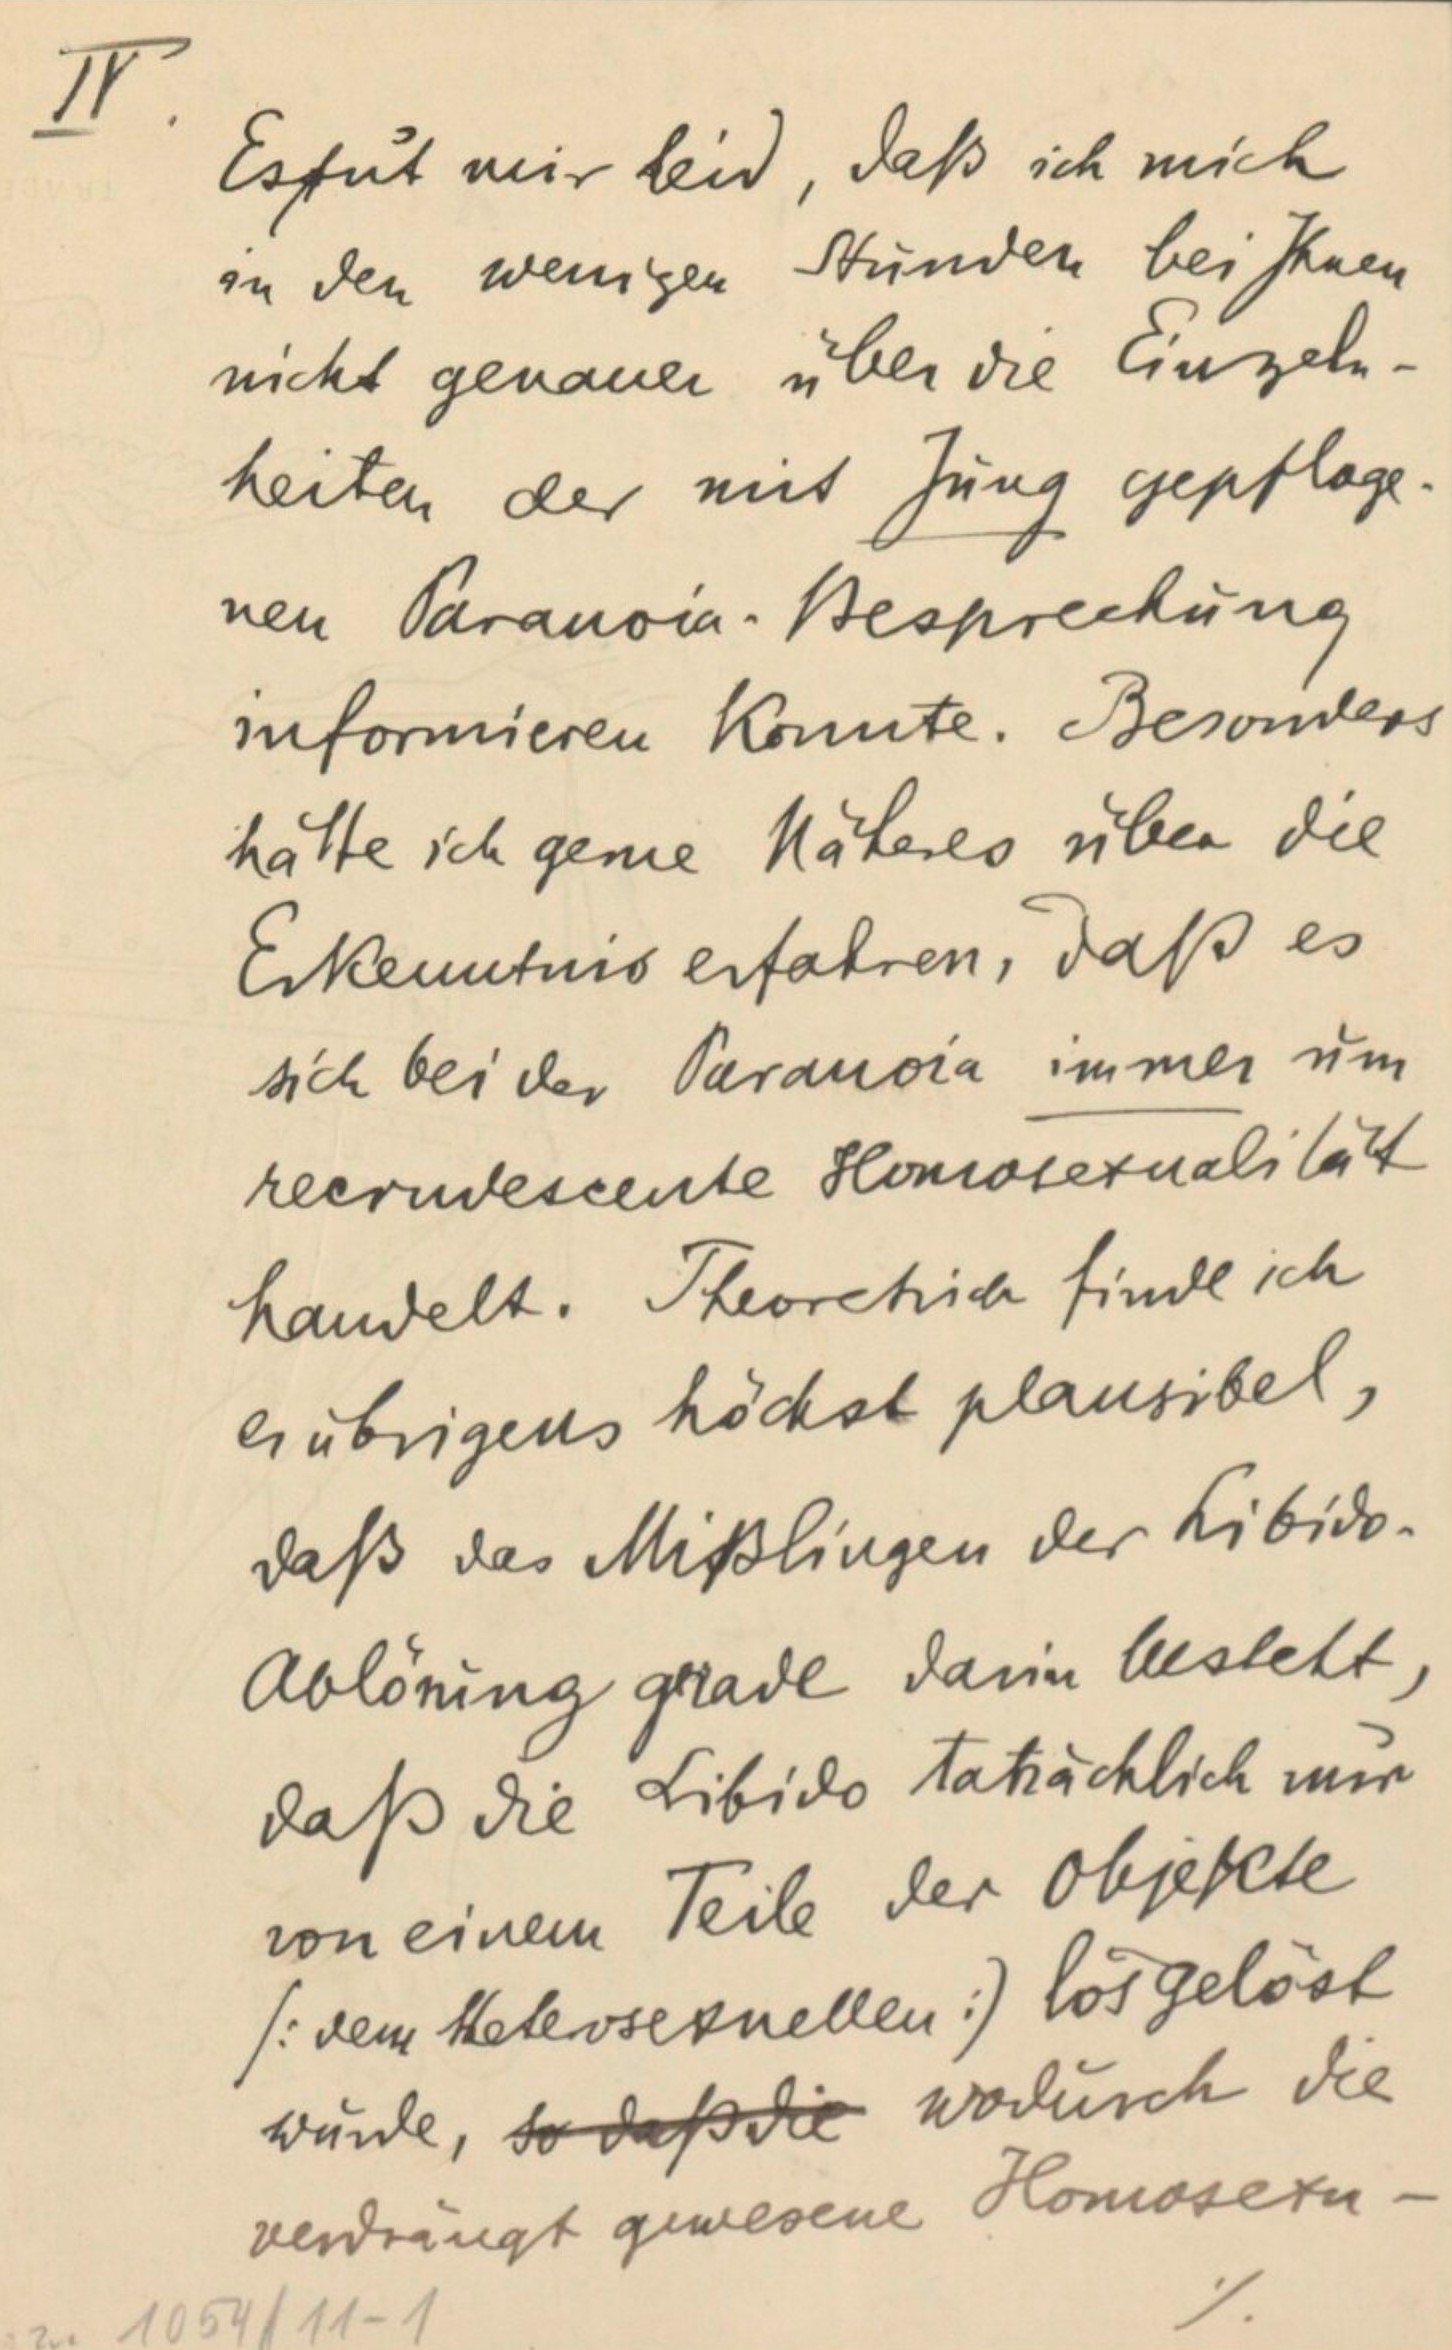 IV.
Es tut mir leid, daß ich mich
in den wenigen Stunden bei Ihnen
nicht genauer über die Einzeln-
heiten der mit Jung gepfloge-
nen Paranoia-Besprechung
informieren konnte. Besonders
hätte ich gerne Näheres über die
Erkenntnis erfahren, daß es
sich bei der Paranoia immer um
recrudescente Homosexualität
handelt. Theoretisch finde ich
es übrigens höchst plausibel,
daß das Mißlingen der Libido-
Ablösung grade darin besteht,
daß die Libido tatsächlich nur
von einem Teile der Objekte
(: dem Heterosexuellen :) losgelöst
wurde, so daß die wodurch die
verdrängt gewesene Homosexu-
./.
zu 1054/11-1